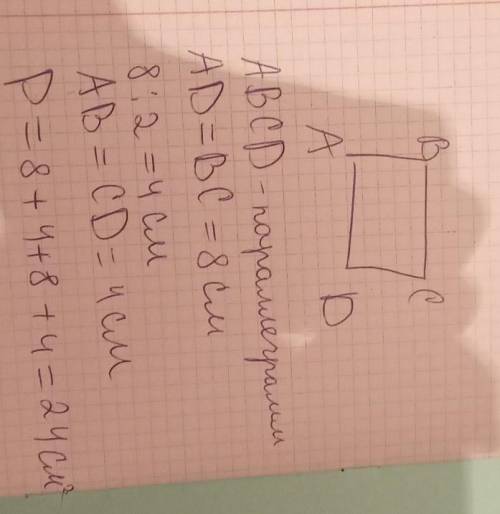 B
C
A
D
ABCD - параллеграмм
AD = BC = 8 см
8 : 2 = 4 см
AB = CD = 4 см
P = 8 + 4 + 8 + 4 = 24 см²